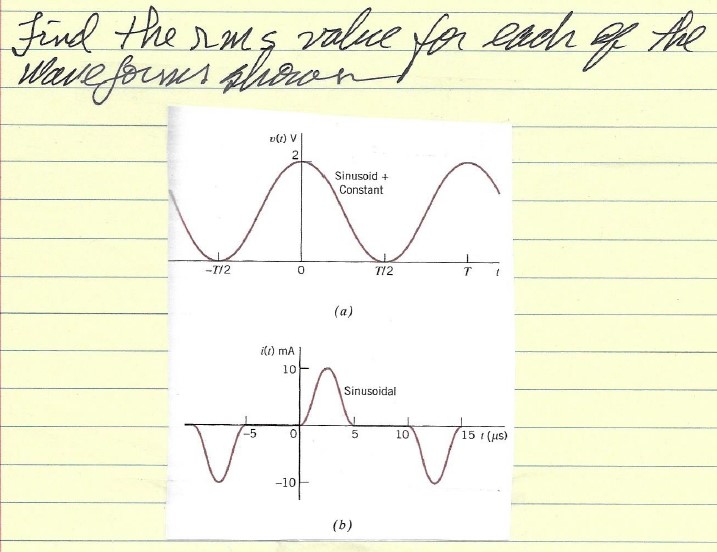 Find the rms value for each of the
waveforms shown
v(t) V
2
Sinusoid +
Constant
-T/2
0
T/2
T
t
(a)
i(t) mA
10
Sinusoidal
-5
0
5
10
15
t (μs)
-10
(b)